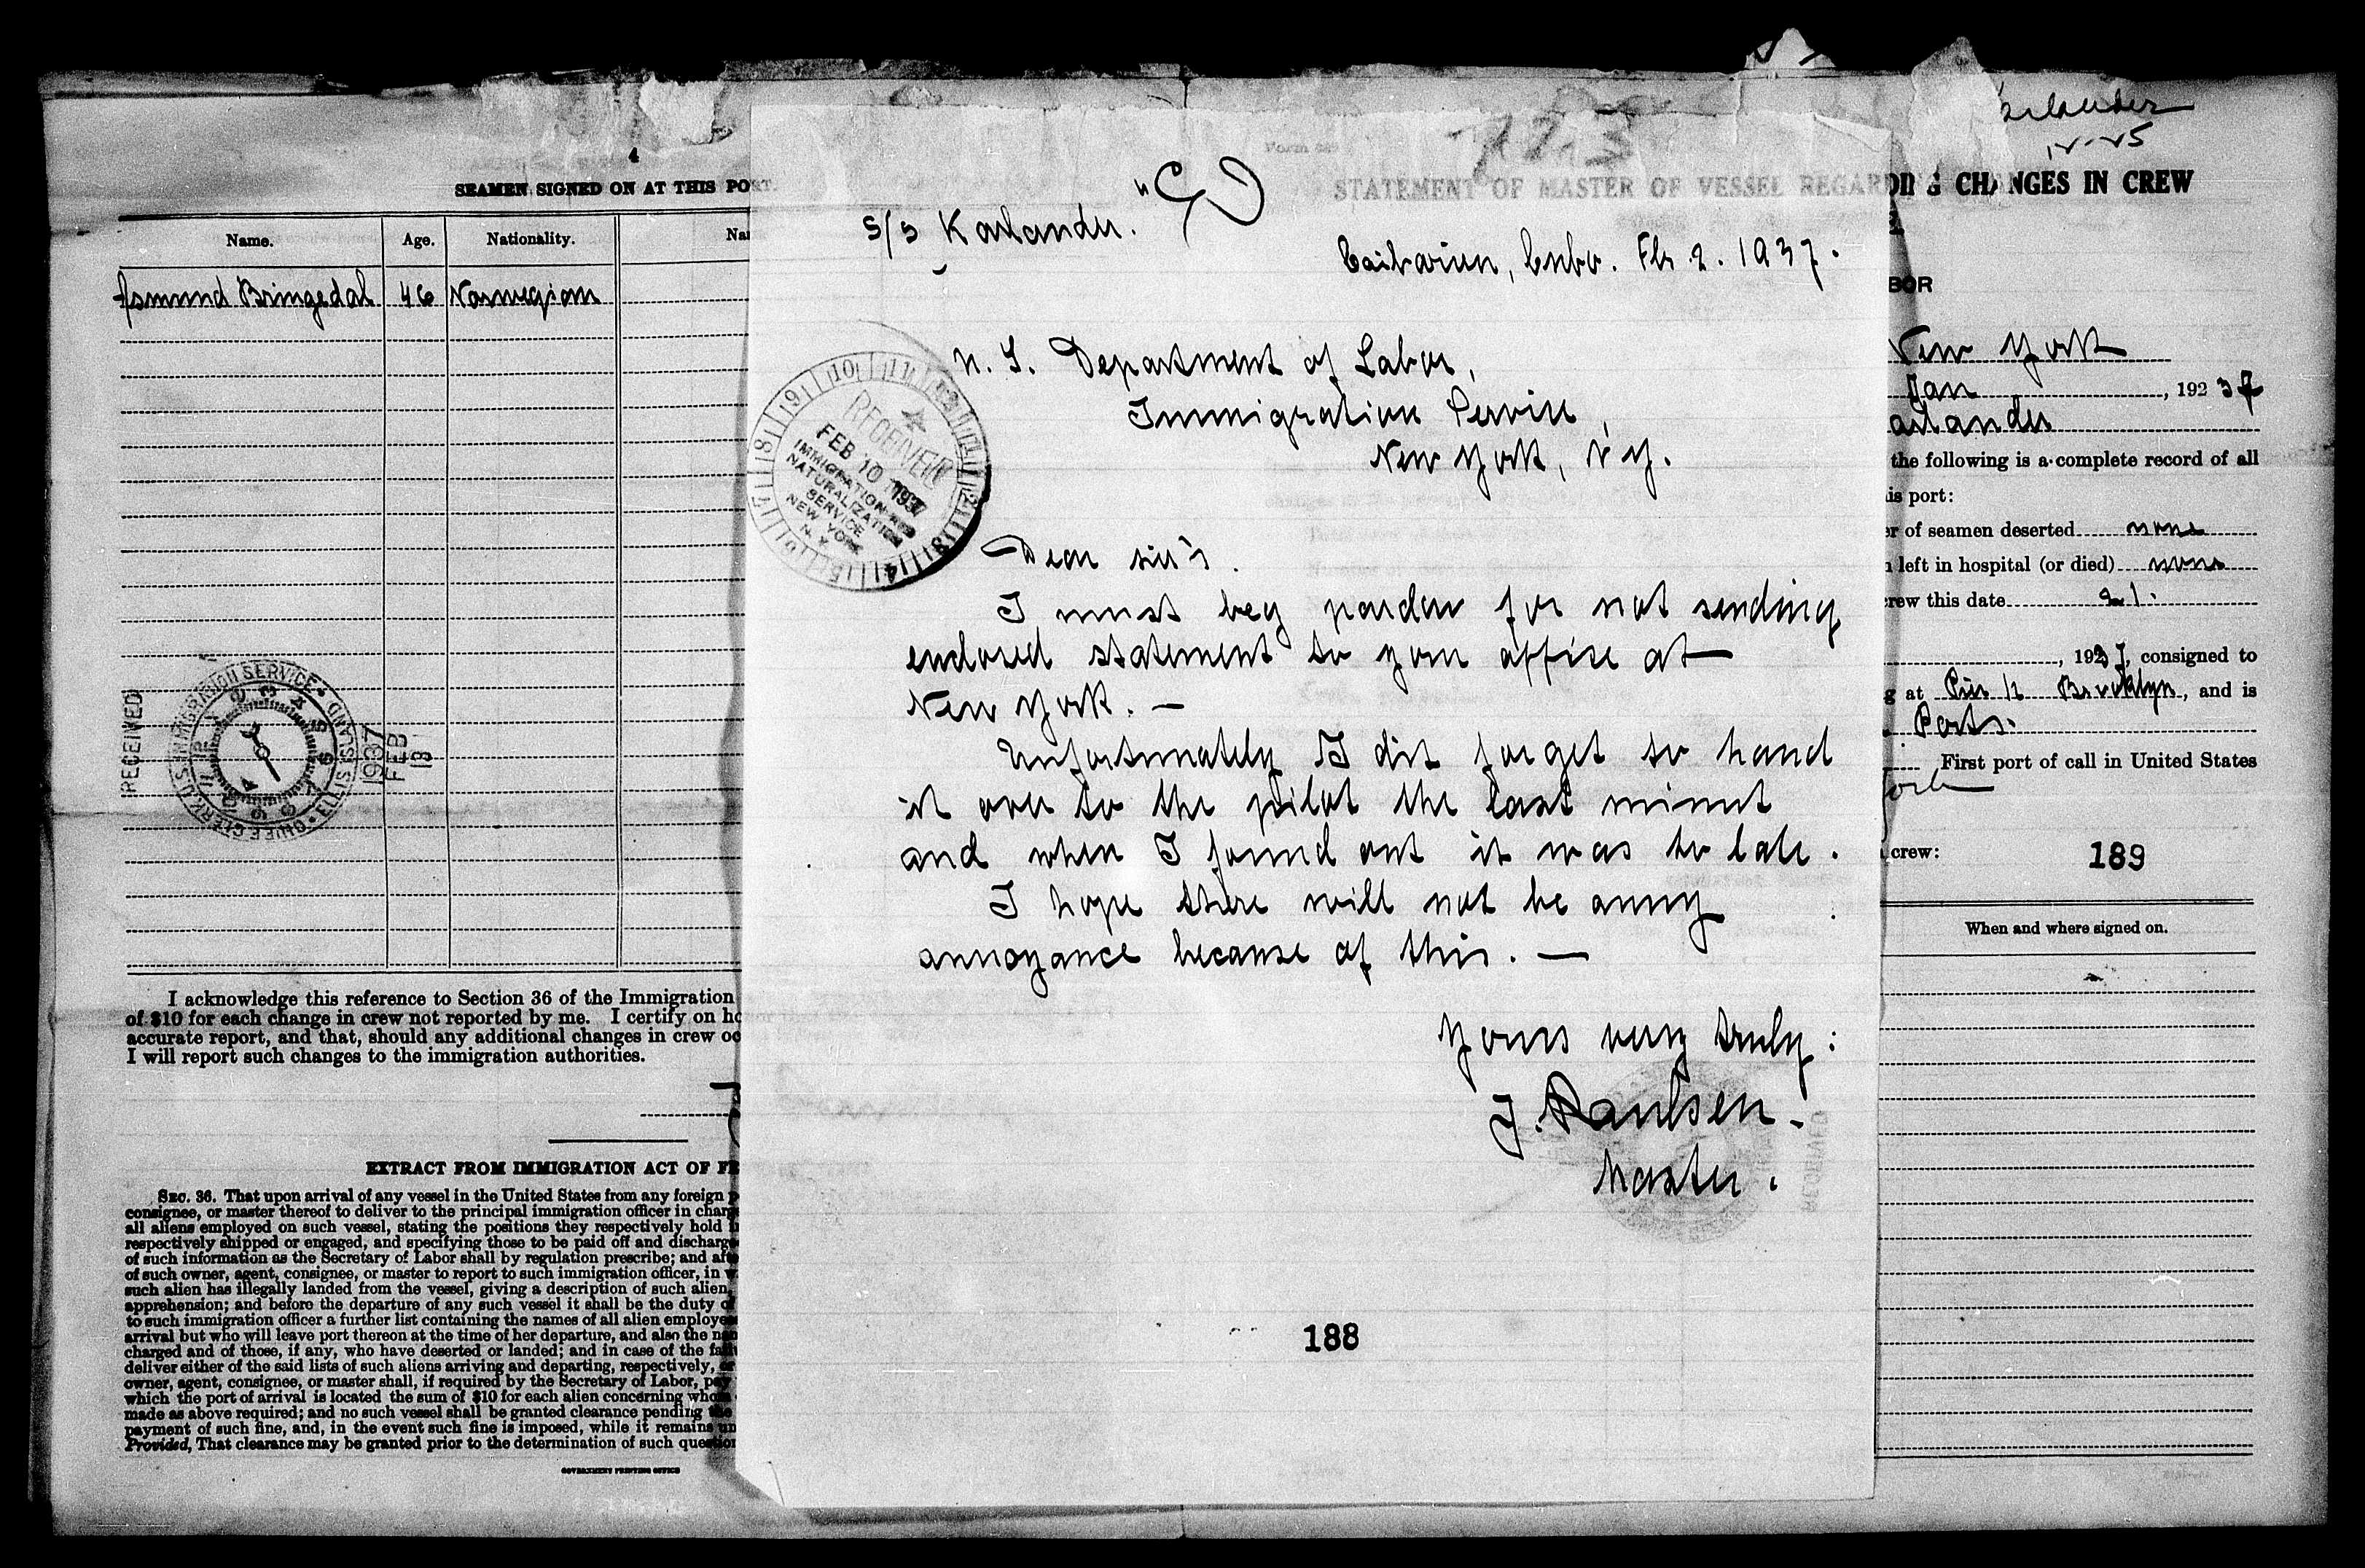 4
SEAMEN SIGNED ON AT THIS PORT.
Name. Age. Nationality. Na
Asmund Bringedal 46 Norwegian
RECEIVED
U.S. IMMIGRATION SERVICE
CHIEF CLERK ELLIS ISLAND
1937
FEB
13
I acknowledge this reference to Section 36 of the Immigration
of $10 for each change in crew not reported by me. I certify on ho
accurate report, and that, should any additional changes in crew oc
I will report such changes to the immigration authorities.
EXTRACT FROM IMMIGRATION ACT OF FE
SEC. 36. That upon arrival of any vessel in the United States from any foreign p
consignee, or master thereof to deliver to the principal immigration officer in charg
all aliens employed on such vessel, stating the positions they respectively hold i
respectively shipped or engaged, and specifying those to be paid off and discharge
of such information as the Secretary of Labor shall by regulation prescribe; and afte
of such owner, agent, consignee, or master to report to such immigration officer, in w
such alien has illegally landed from the vessel, giving a description of such alien,
apprehension; and before the departure of any such vessel it shall be the duty of
to such immigration officer a further list containing the names of all alien employe
arrival but who will leave port thereon at the time of her departure, and also the na
charged and of those, if any, who have deserted or landed; and in case of the fail
deliver either of the said lists of such aliens arriving and departing, respectively, or
owner, agent, consignee, or master shall, if required by the Secretary of Labor, pay
which the port of arrival is located the sum of $10 for each alien concerning whom
made as above required; and no such vessel shall be granted clearance pending the
payment of such fine, and, in the event such fine is imposed, while it remains un
Provided, That clearance may be granted prior to the determination of such question
GOVERNMENT PRINTING OFFICE
STATEMENT OF MASTER OF VESSEL REGARD
S/S Karlander.
Caibarien, Cuba. Feb 2. 1937.
U. S. Department of Labor,
Immigration Service,
New York, N.y.
RECEIVED
FEB 10 1937
IMMIGRATION AND
NATURALIZATION
SERVICE
NEW YORK
N. Y.
Dear sir's.
I must beg pardon for not sending
enclosed statement to your office at
New York. —
Unfortunately I dit forget to hand
it over to the pilot the last minut
and when I found out it was to late.
I hope there will not be anny
annoyance because of this. —
Yours very truly:
J. Paulsen.
Master.
188
arlander
DING CHANGES IN CREW
BOR
New York
Jan , 1937
arlander
the following is a complete record of all
is port:
er of seamen deserted none
left in hospital (or died) none
crew this date 21.
, 1937, consigned to
g at Pier 12 Brooklyn, and is
Ports.
First port of call in United States
ork
crew: 189
When and where signed on.